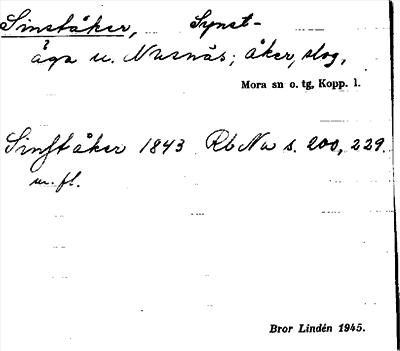 Sinståker, Synst-
åga u. Nusnäs; åker, slog,
Mora sn o. tg, Kopp. l.
Sinståker 1843 Rb Na s. 200, 229.
m. fl.
Bror Lindén 1945.